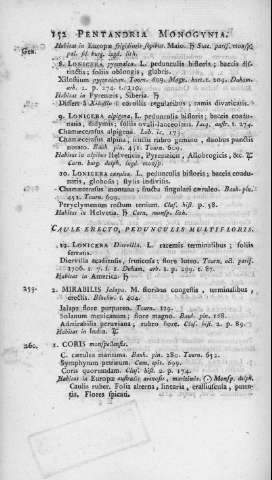 152 PENTANDRIA MONOGYNIA.
Habitat in Europæ frigidioris sepibus. Maio. ♄
Gen.
8. LONICERA pyrenaica. L. pedunculis bifloris; baccis dis-
tinctis; foliis oblongis, glabris.
Xilosteum pyrenaicum. Tourn. 609. Magn. hort. t. 209. Duham.
arb. 1. p. 274. t. 110.
Habitat in Pyreneis, Siberia. ♄
Differt à Xilosteo corollis regularibus; ramis divaricatis.
9. LONICERA alpigena. L. pedunculis bifloris; baccis coadu-
natis, didymis; foliis ovali-lanceolatis. Jacq. austr. t. 274.
Chamæcerasus alpigena. Lob. ic. 173.
Chamæcerasus alpina, fructu rubro gemino, duobus punctis
notato. Bauh. pin. 451. Tourn. 609.
Habitat in alpibus Helveticis, Pyrenaicis, Allobrogicis, &c.
10. LONICERA cærulea. L. pedunculis bifloris; baccis coadu-
natis, globosis; stylis indivisis.
Chamæcerasus montana; fructu singulari cæruleo. Bauh. pin.
451. Tourn. 609.
Periclymenum rectum tertium. Clus. hist. p. 58.
Habitat in Helvetia. ♄
CAULE ERECTO, PEDUNCULIS MULTIFLORIS.
12. LONICERA Diervilla. L. racemis terminalibus; foliis
serratis.
Diervilla acadiensis, fruticosa; flore luteo. Tourn. act. paris.
1706. t. 7. f. 1. Duham. arb. 1. p. 209. t. 87.
Habitat in America ♄
259. 2. MIRABILIS Jalapa. M. floribus congestis, terminalibus,
erectis. Blackw. t. 404.
Jalapa flore purpureo. Tourn. 129.
Solanum mexicanum; flore magno. Bauh. pin. 168.
Admirabilis peruviana; rubro flore. Clus. hist. 2. p. 89.
Habitat in India.
260. 1. CORIS monspeliensis.
C. cærulea maritima. Bauh. pin. 280. Tourn. 652.
Symphytum petræum. Cam. epit. 699.
Coris quorumdam. Clus. hist. 2. p. 174.
Habitat in Europæ australis arenosis, maritimis.
Caulis ruber. Folia alterna, linearia, crassiuscula, paten-
tia. Flores spicati.